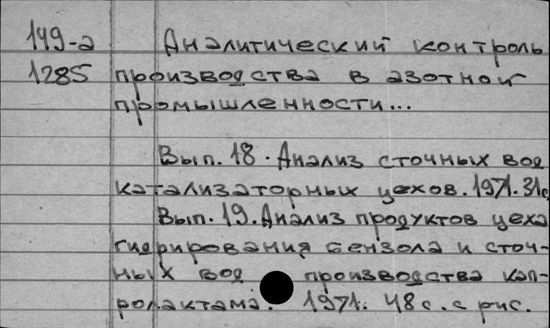 149-а Аналитический контроль
1285 производства в азотной
промышленности...
Вып. 18. Анализ сточных вод
катализаторных цехов. 1971. 31с.
Вып. 19. Анализ продуктов цеха
гидрирования бензола и сточ-
ных вод производства кап-
ролактама. 1971. 48 с. с рис.